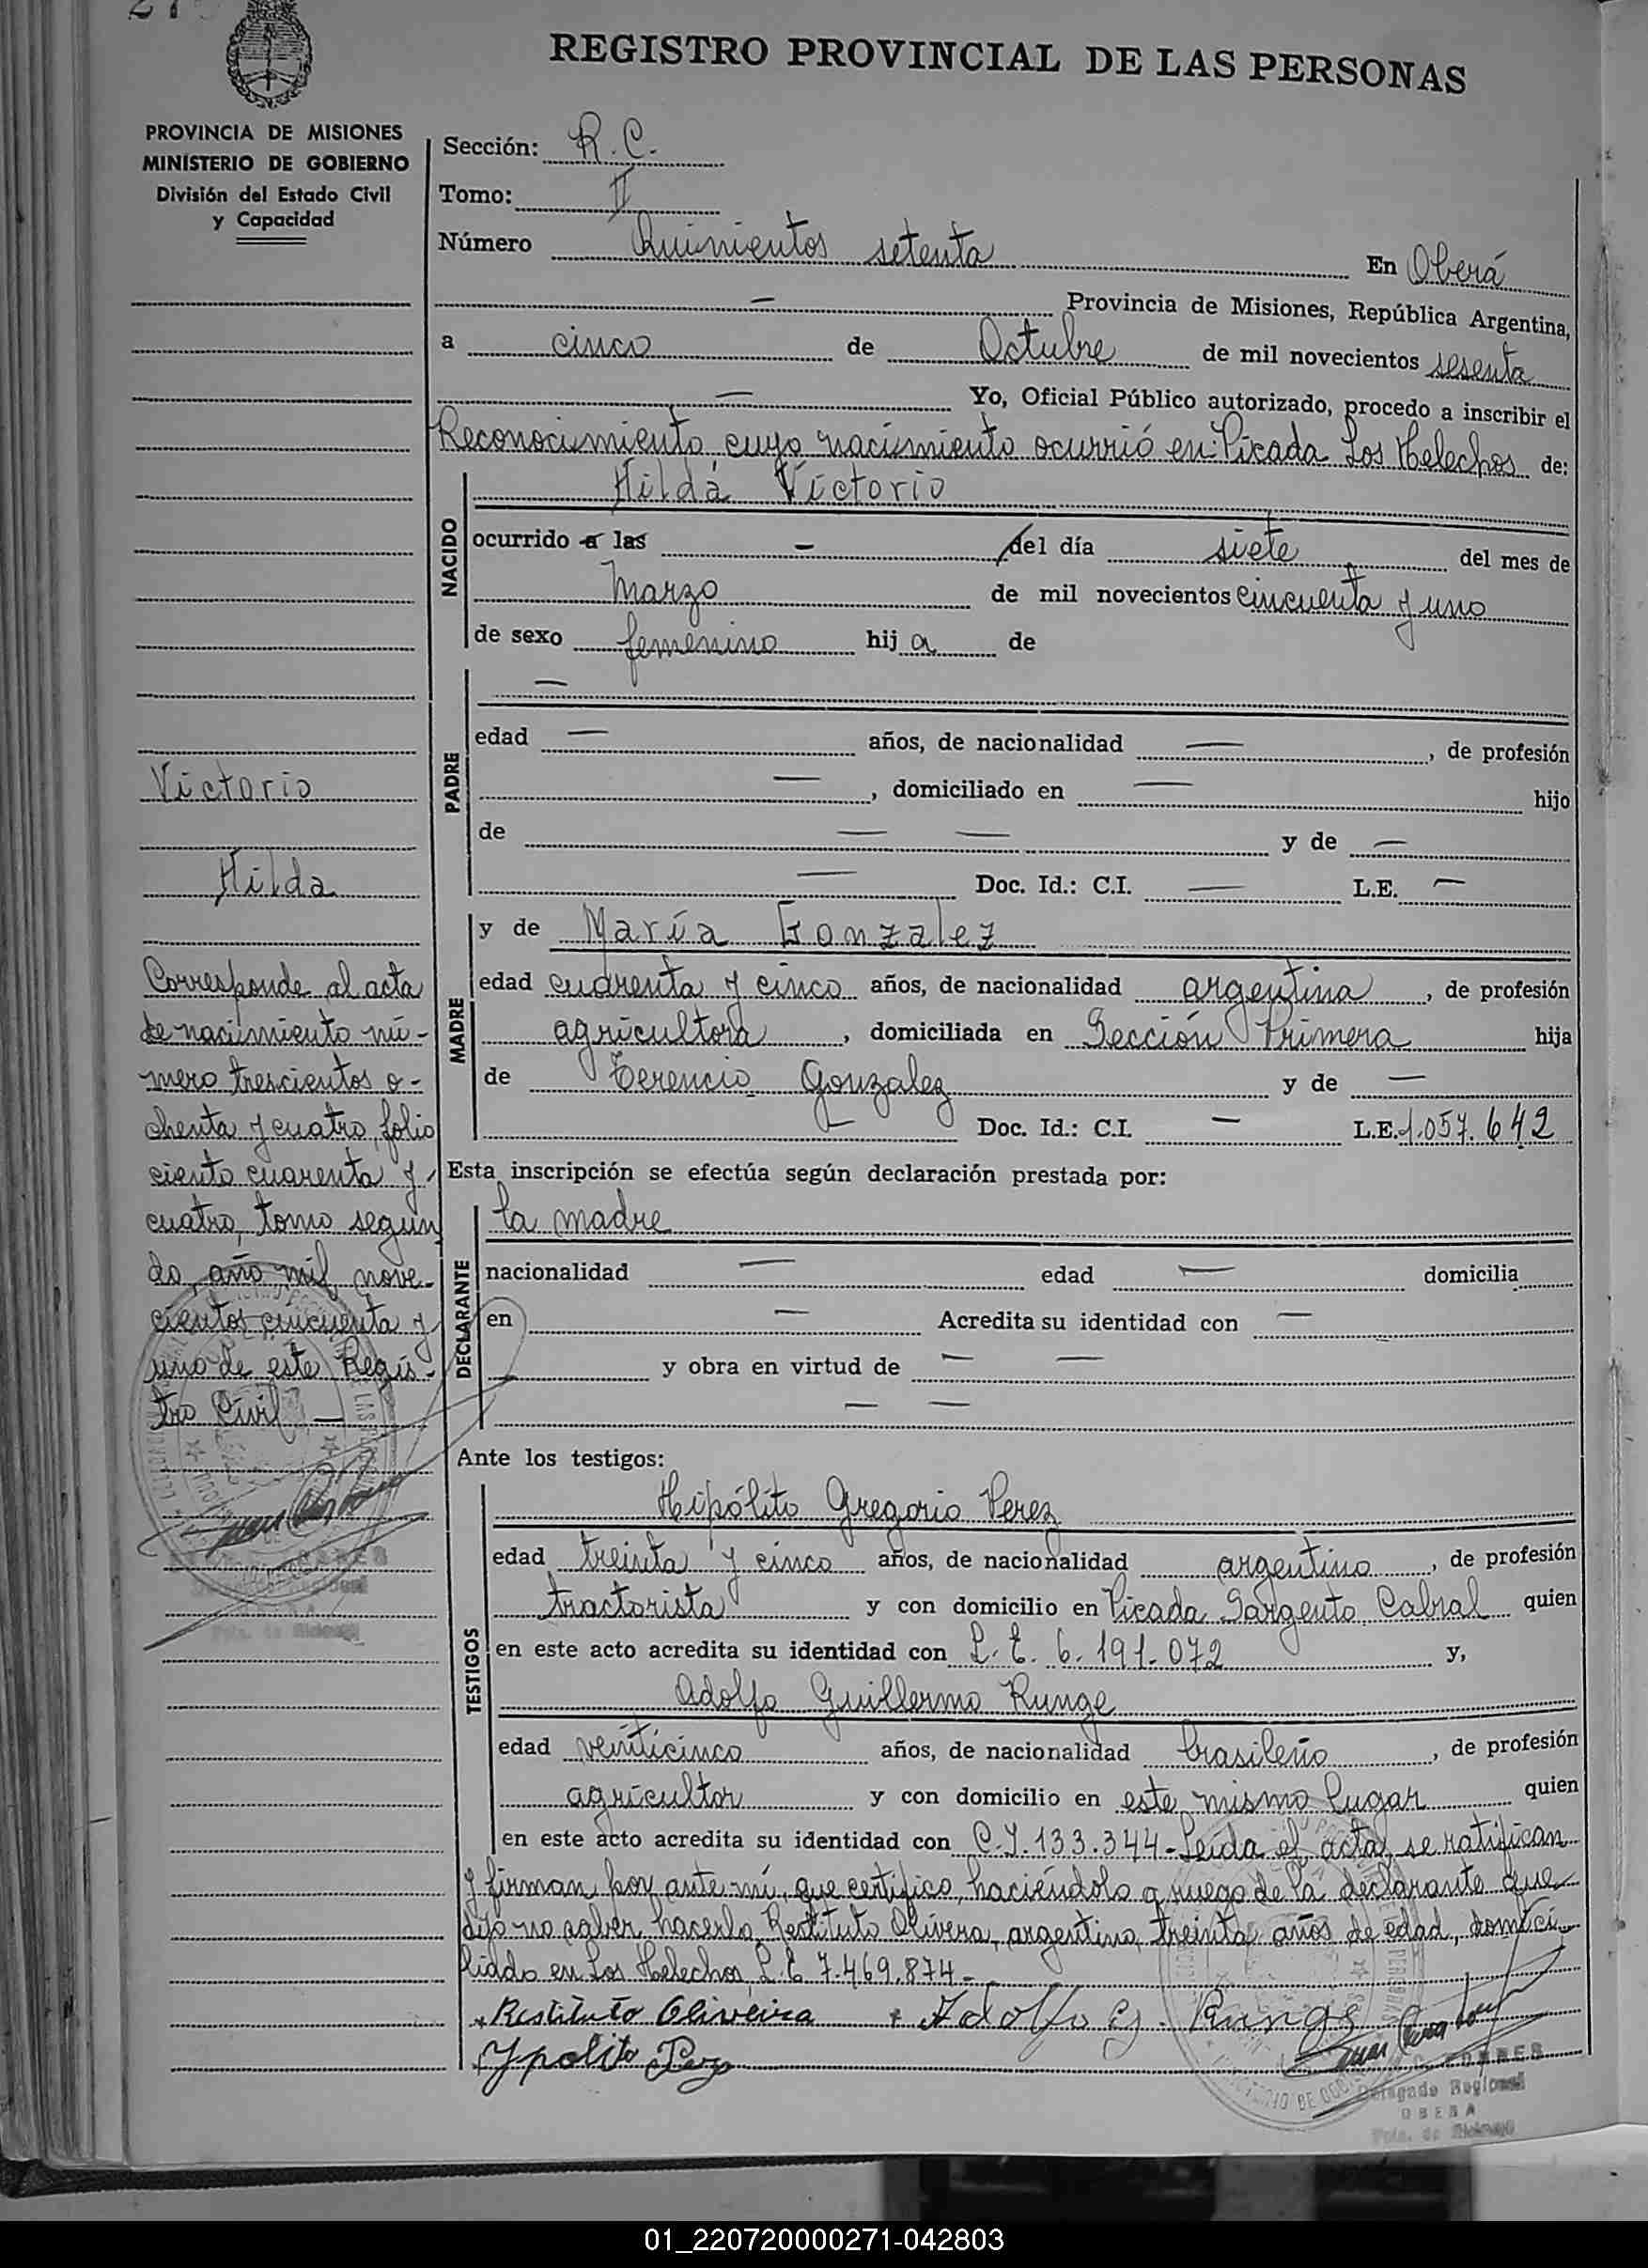 REGISTRO PROVINCIAL DE LAS PERSONAS
PROVINCIA DE MISIONES
MINISTERIO DE GOBIERNO
División del Estado Civil
y Capacidad
Sección: R. C.
Tomo: II
Número Quinientos setenta En Oberá
— Provincia de Misiones, República Argentina,
a cinco de Octubre de mil novecientos sesenta
— Yo, Oficial Público autorizado, procedo a inscribir el
Reconocimiento, cuyo nacimiento ocurrió en: Picada Los Helechos de:
NACIDO
Hilda Victorio
ocurrido a las — del día siete del mes de
Marzo de mil novecientos cincuenta y uno
de sexo femenino hij a de
PADRE
—
edad — años, de nacionalidad —, de profesión
—, domiciliado en — hijo
de — — y de —
— Doc. Id.: C.I. — L.E. —
MADRE
y de María Gonzalez
edad cuarenta y cinco años, de nacionalidad argentina, de profesión
agricultora, domiciliada en Sección Primera hija
de Terencio Gonzalez y de —
— Doc. Id.: C.I. — L.E. 1.057.642
Esta inscripción se efectúa según declaración prestada por:
DECLARANTE
la madre
nacionalidad — edad — domicilia
en — Acredita su identidad con —
y obra en virtud de — —
— —
Ante los testigos:
TESTIGOS
Hipólito Gregorio Perez
edad treinta y cinco años, de nacionalidad argentino, de profesión
tractorista y con domicilio en Picada Sargento Cabral quien
en este acto acredita su identidad con L. E. 6.191.072 y,
Adolfo Guillermo Runge
edad veinticinco años, de nacionalidad brasileño, de profesión
agricultor y con domicilio en este mismo lugar quien
en este acto acredita su identidad con C.I. 133.344 - Leída el acta, se ratifican
y firman por ante mí, que certifico, haciéndolo a ruego de la declarante que
dijo no saber hacerlo, Restituto Olivera, argentino, treinta años de edad, domici-
liado en Los Helechos, L.E 7.469.874 -
Restituto Oliveira Adolfo G. Runge
Ypolito Perez
TORRES
Delegado Regional
OBERA
Pcia. de Misiones
Victorio
Hilda
Corresponde al acta
de nacimiento nú-
mero trescientos o-
chenta y cuatro, folio
ciento cuarenta y
cuatro, tomo segun
do, año mil nove-
cientos cincuenta y
uno de este Regis-
tro Civil —
01_220720000271-042803